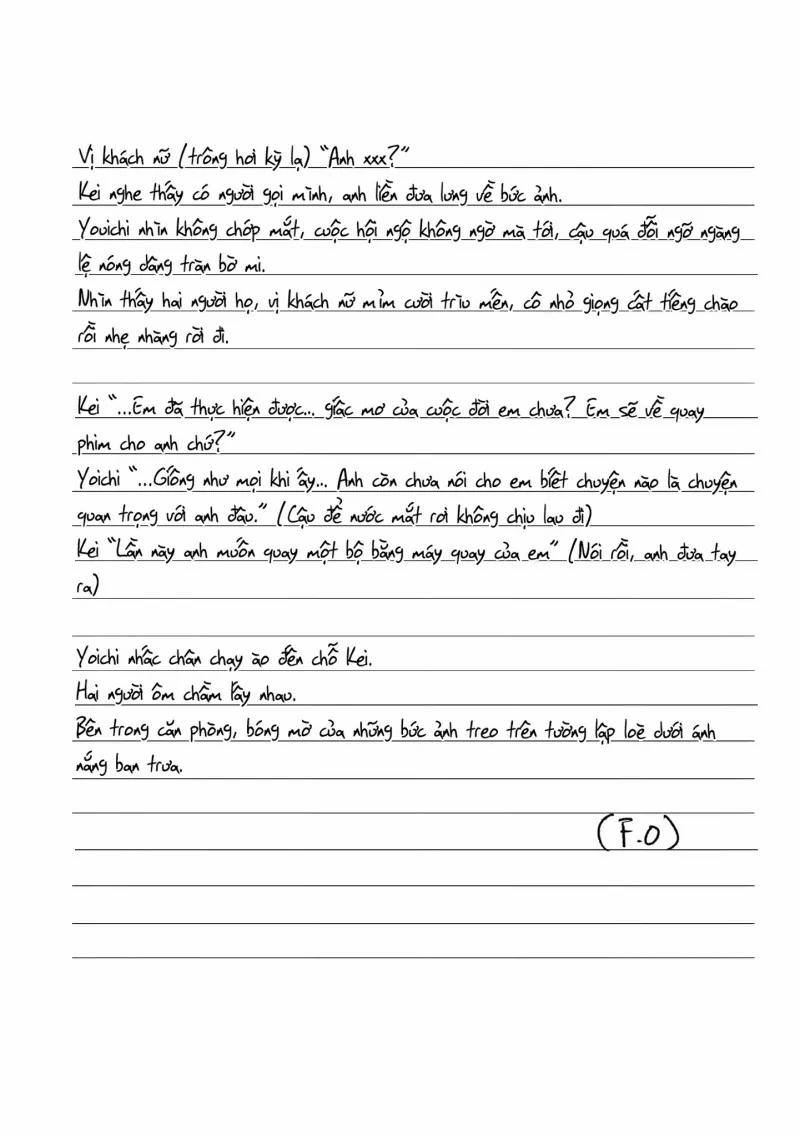 Vị khách nữ (trông hơi kỳ lạ) “Anh xxx?”
Kei nghe thấy có người gọi mình, anh liền đưa lưng về bức ảnh.
Youichi nhìn không chớp mắt, cuộc hội ngộ không ngờ mà tới, cậu quá đỗi ngỡ ngàng
lệ nóng dâng tràn bờ mi.
Nhìn thấy hai người họ, vị khách nữ mỉm cười trìu mến, cô nhỏ giọng cất tiếng chào
rồi nhẹ nhàng rời đi.
Kei “...Em đã thực hiện được... giấc mơ của cuộc đời em chưa? Em sẽ về quay
phim cho anh chứ?”
Yoichi “...Giống như mọi khi ấy... Anh còn chưa nói cho em biết chuyện nào là chuyện
quan trọng với anh đâu.” (Cậu để nước mắt rơi không chịu lau đi)
Kei “Lần này anh muốn quay một bộ bằng máy quay của em” (Nói rồi, anh đưa tay
ra)
Yoichi nhấc chân chạy ào đến chỗ Kei.
Hai người ôm chầm lấy nhau.
Bên trong căn phòng, bóng mờ của những bức ảnh treo trên tường lập loè dưới ánh
nắng ban trưa.
(F.O)